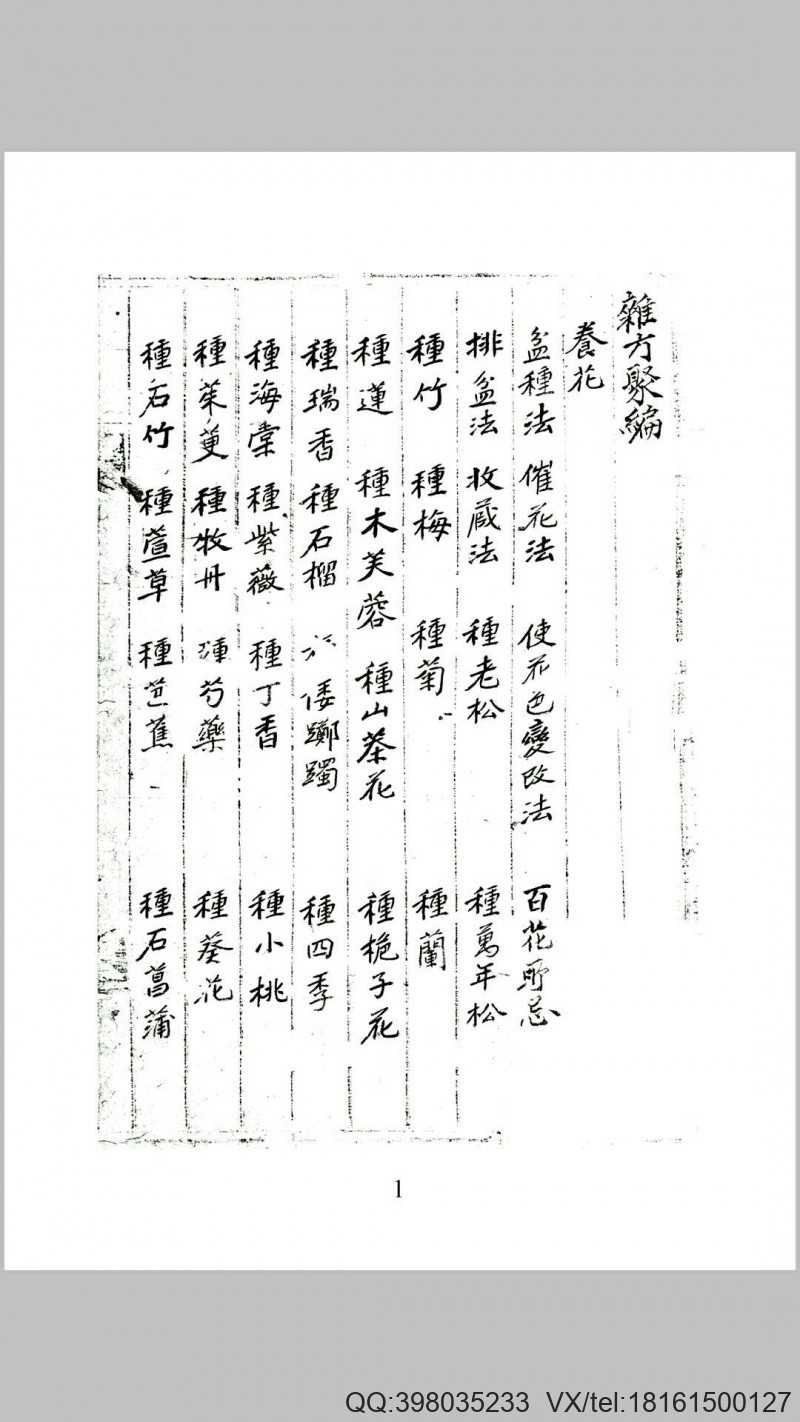 雜方聚編
養花
盆種法 催花法 使花色變改法 百花所忌
排盆法 收蔵法 種老松 種萬年松
種竹 種梅 種菊 種蘭
種蓮 種木芙蓉 種山茶花 種梔子花
種瑞香 種石榴 倭躑躅 種四季
種海棠 種紫薇 種丁香 種小桃
種茱萸 種牧丹 種芍藥 種葵花
種石竹 種萱草 種芭蕉 種石菖蒲
1
QQ:398035233 VX/tel:18161500127